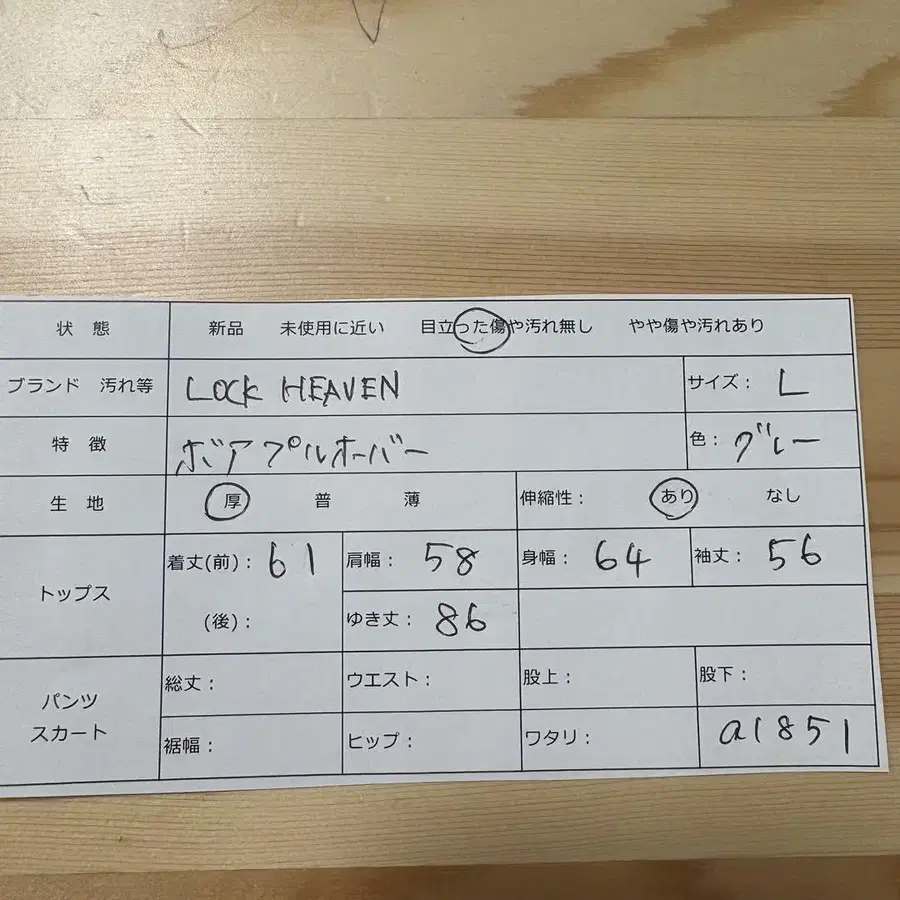 状 態 新品 未使用に近い 目立った傷や汚れ無し やや傷や汚れあり
ブランド 汚れ等 LOCK HEAVEN サイズ： L
特 徴 ボアプルオーバー 色： グレー
生 地 厚 普 薄 伸縮性： あり なし
トップス 着丈(前)： 61 肩幅： 58 身幅： 64 袖丈： 56
(後)： ゆき丈： 86
パンツ スカート 総丈： ウエスト： 股上： 股下：
裾幅： ヒップ： ワタリ： a1851